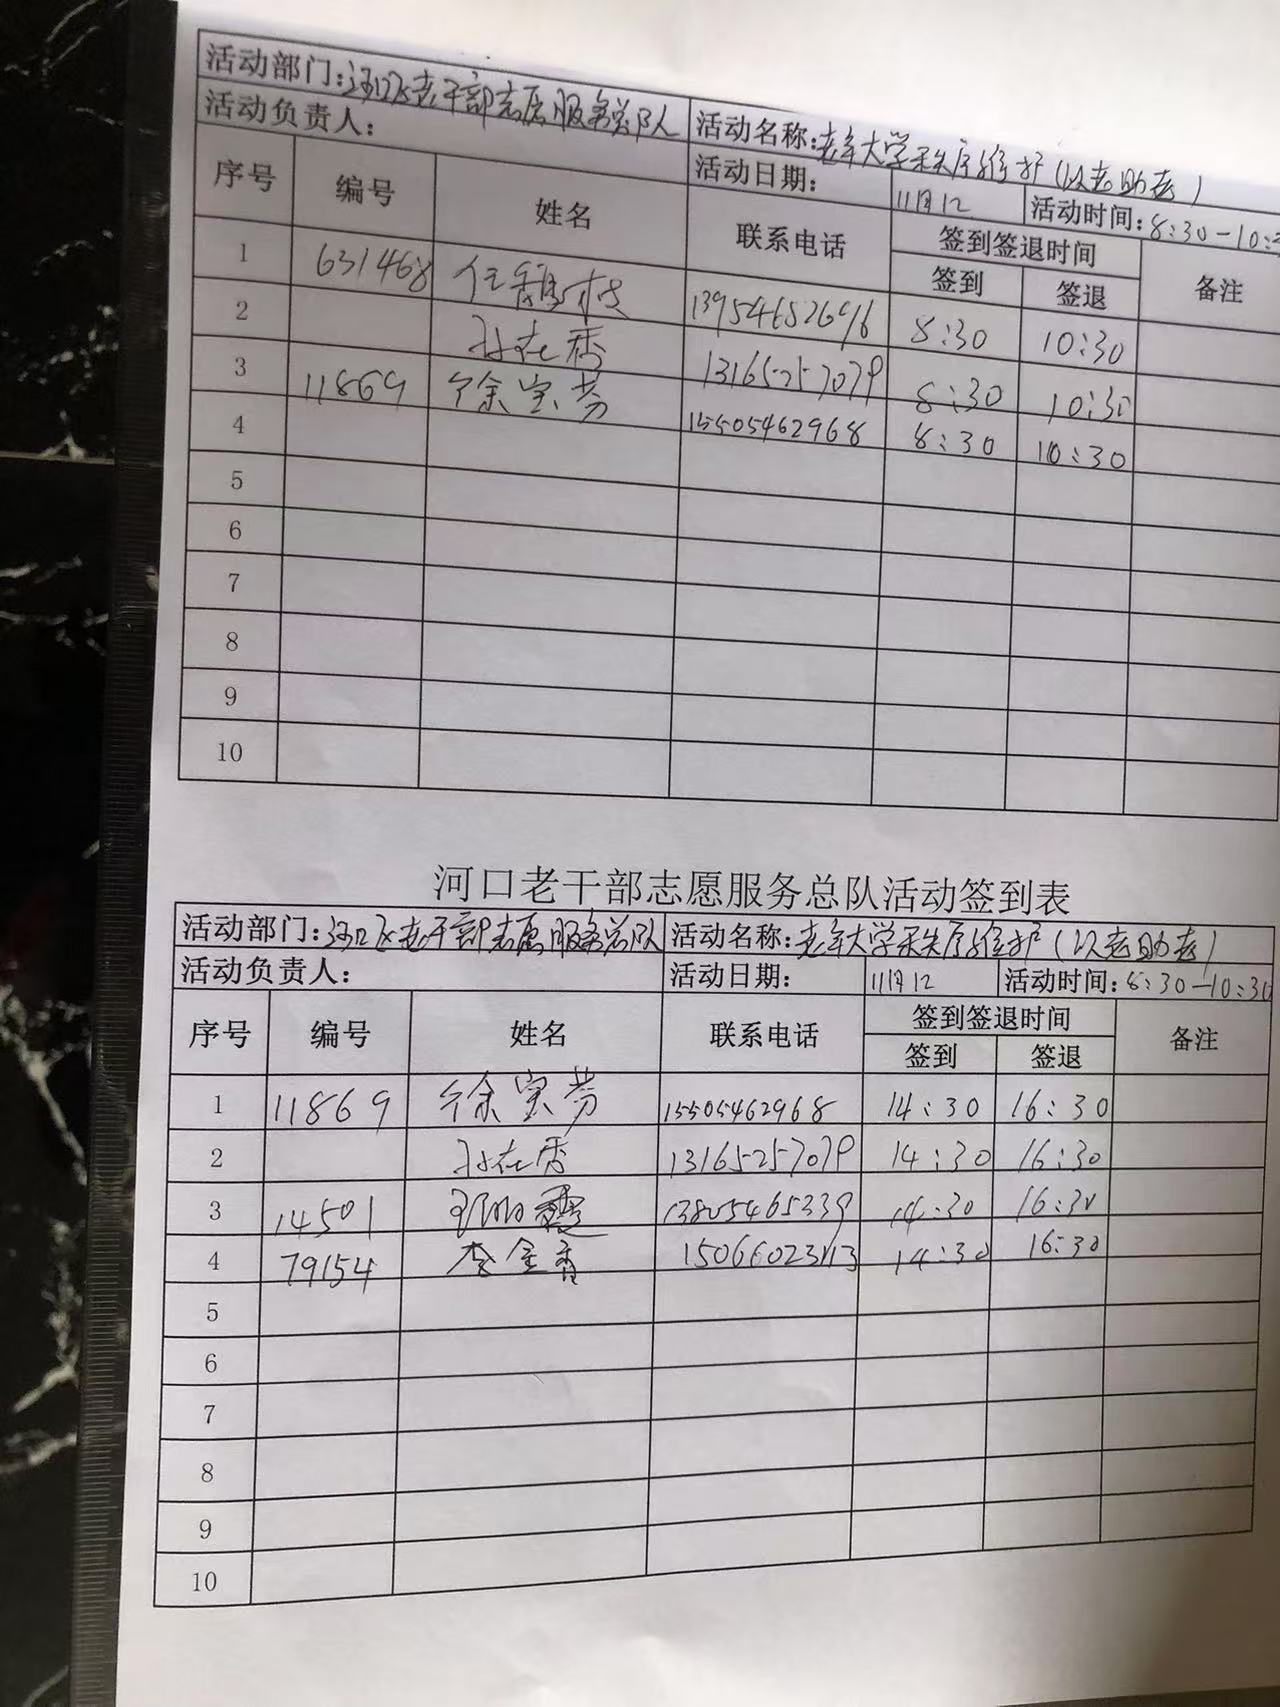 活动部门:河口区老干部志愿服务总队 活动名称:老年大学秩序维护(以老助老)
活动负责人: 活动日期: 11月12 活动时间:8:30-10:3
序号 编号 姓名 联系电话 签到签退时间 备注
签到 签退
1 631468 任 枝 13954652696 8:30 10:30
2 孙在香 13165257079 8:30 10:30
3 11869 徐宝芳 15505462968 8:30 10:30
4
5
6
7
8
9
10
河口老干部志愿服务总队活动签到表
活动部门:河口区老干部志愿服务总队 活动名称:老年大学秩序维护(以老助老)
活动负责人: 活动日期: 11月12 活动时间:8:30-10:30
序号 编号 姓名 联系电话 签到签退时间 备注
签到 签退
1 11869 徐宝芳 15505462968 14:30 16:30
2 孙在香 13165257079 14:30 16:30
3 14501 13805465339 14:30 16:30
4 79154 李金香 14:30 16:30
5
6
7
8
9
10